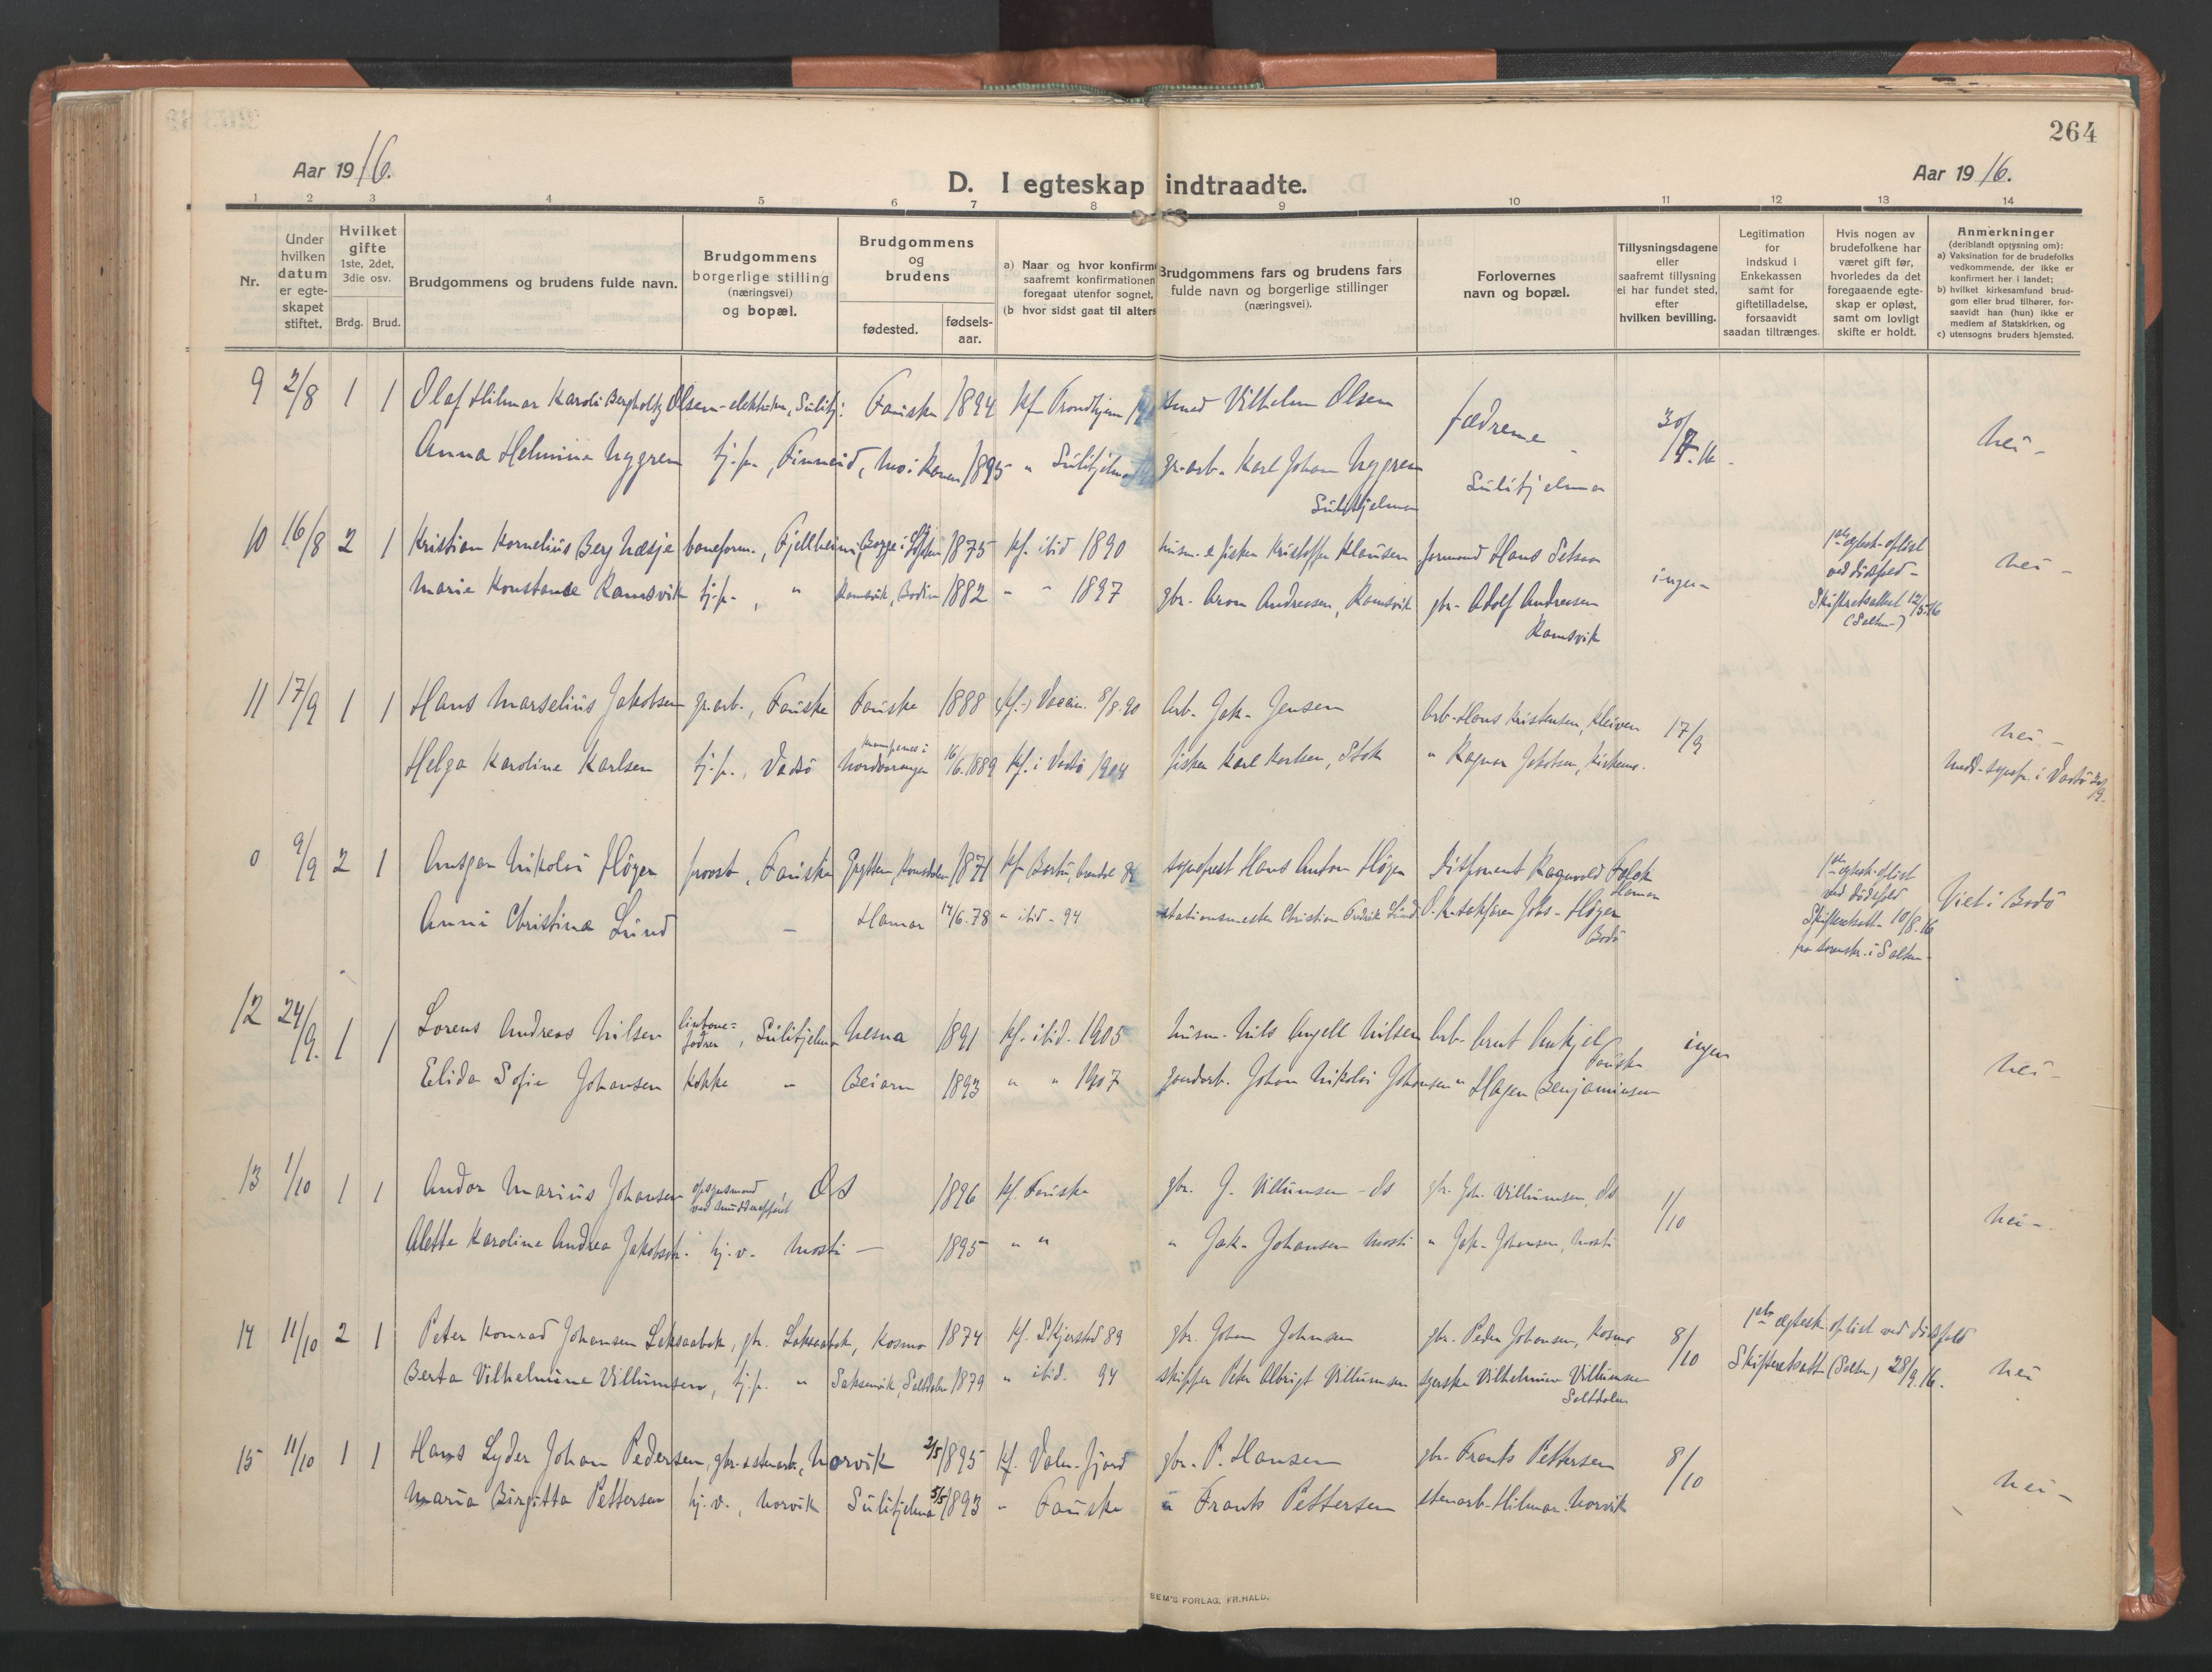 264
Aar 1916.
Aar 1916.
D. I egteskap indtraadte.
1 2 3 4 5 6 7 8 9 10 11 12 13 14
Nr.
Under hvilken datum er egteskapet stiftet.
Hvilket gifte 1ste, 2det, 3die osv.
Brdg. Brud.
Brudgommens og brudens fulde navn.
Brudgommens borgerlige stilling (næringsvei) og bopæl.
Brudgommens og brudens
fødested.
fødsels-aar.
a) Naar og hvor konfirm
saafremt konfirmationen
foregaat utenfor sognet,
(b hvor sidst gaat til alters
Brudgommens fars og brudens fars fulde navn og borgerlige stillinger (næringsvei).
Forlovernes navn og bopæl.
Tillysningsdagene eller saafremt tillysning ei har fundet sted, efter hvilken bevilling.
Legitimation for indskud i Enkekassen samt for giftetilladelse, forsaavidt saadan tiltrænges.
Hvis nogen av brudefolkene har været gift før, hvorledes da det foregaaende egteskap er opløst, samt om lovligt skifte er holdt.
Anmerkninger
(deriblandt oplysning om):
a) Vaksination for de brudefolks vedkommende, der ikke er konfirmert her i landet;
b) hvilket kirkesamfund brudgom eller brud tilhører, forsaavidt han (hun) ikke er medlem af Statskirken, og
c) utensogns bruders hjemsted.
9 2/8 1 1 Olaf Hilmar Karoli Bergholtz Olsen - elektriker, Sulitj. Fauske 1894 kf Trondhjem smed Vilhelm Olsen fædrene 30/7.16. nei -
Anna Helmine Nygren tj.p., Finneid, Mo i Ranen 1895 " Sulitjelma gr.arb. Karl Johan Nygren Sulitjelma
Sulitjelma
10 16/8 2 1 Kristian Kornelius Berg Næsje baneform., Fjellheim (Borge i Lofoten 1875 kf. ibid 1890 husm. & fisker Kristoffer Klausen formand Hans Setsaa ingen 1ste egtesk. opløst ved dødsfald - Skifteretsattest 12/5.16 (Salten) nei -
Marie Konstanse Ramsvik tj.p., " Ramsvik, Bodin 1882 " " 1897 gbr. Aron Andreasen, Ramsvik gbr. Adolf Andreasen
Ramsvik
11 17/9 1 1 Hans Marselius Jakobsen gr.arb., Fauske Fauske 1888 kf. Vaccin. 8/8.90 Arb. Jak. Jensen Arb. Hans Kristensen, Kleiven 17/9 nei -
Helga Karoline Karlsen tj.p., Vadsö Nordvaranger 16/6.1889 kf. i Vadsö 1904 fisker Karl Karlsen, Stok " Ragnar Jakobsen, Kirkenes. Medd. sognepr. i Vadsö 20/9.
0 9/9 2 1 Ansgar Nikolai Höyer provst, Fauske Grytten, Romsdalen 1871 kf sognepræst Hans Anton Höyer Disponent Ragnvald Falck Hamar 1ste egtesk. opløst ved dödsfald Skifteretsatt. 10/8.16 fra sorenskr. i Salten Viet i Bodö
Anni Christina Lund - Hamar 14/6.78 " ibid - 94 stationsmester Christian Fredrik Lund O.r.sakfører Johs. Höyer
Bodö
12 24/9. 1 1 Lorens Andreas Nilsen, Sulitjelma Nesna 1891 kf. ibid. 1905 husm. Nils Angell Nilsen Arb. Arnt Ankjel Fauske ingen nei -
Elida Sofie Johansen kokke " Beiarn 1893 " " 1907 gaardarb. Johan Nikolai Johansen " Hagen Benjaminsen
13 1/10 1 1 Andor Marius Johansen opsynsmand ved mudderapparat, Os 1896 kf. Fauske gbr. J. Villumsen - Os gbr. Joh. Villumsen, Os 1/10 nei -
Alette Karoline Andrea Jakobsen hj.v. Mosti - 1895 " " " Jak. Johansen Mosti " Jak. Johansen, Mosti
14 11/10 2 1 Peter Konrad Johansen Laksaabak, gbr. Laksaabak, Kosmo 1874 kf. Skjerstad 89 gbr. Johan Johnsen gbr. Peder Johansen, Kosmo 8/10 1ste egtesk. opløst ved dødsfald Skifteretsatt. (Salten) 28/9.16. nei
Berta Vilhelmine Villumsen, tj.p. " Saksenvik, Saltdalen 1879 " ibid. 94 skipper Peter Albrigt Villumsen syerske Vilhelmine Villumsen
Saltdalen
15 11/10 1 1 Hans Lyder Johan Pedersen, gbr. & stenarb., Norvik 2/5 1895 kf. Valnfjord gbr. P. Hansen gbr. Frants Pettersen 8/10 nei -
Maria Birgitta Pettersen hj.v., Norvik Sulitjelma 5/5 1893 " Fauske " Frants Pettersen stenarb. Hilmar Norvik
SEM'S FORLAG, FR.HALD.